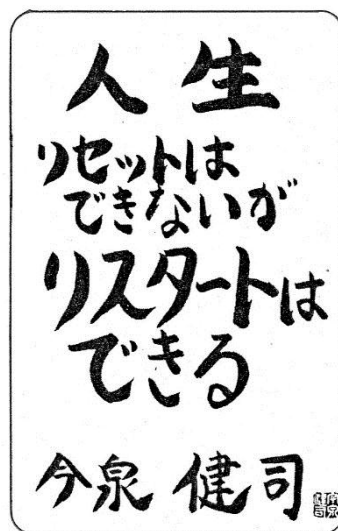 人生
リセットは
できないが
リスタートは
できる
今泉 健司